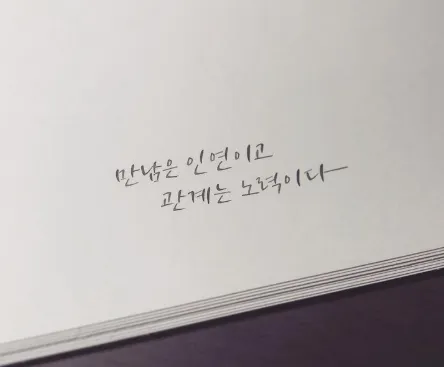 만남은 인연이고
관계는 노력이다